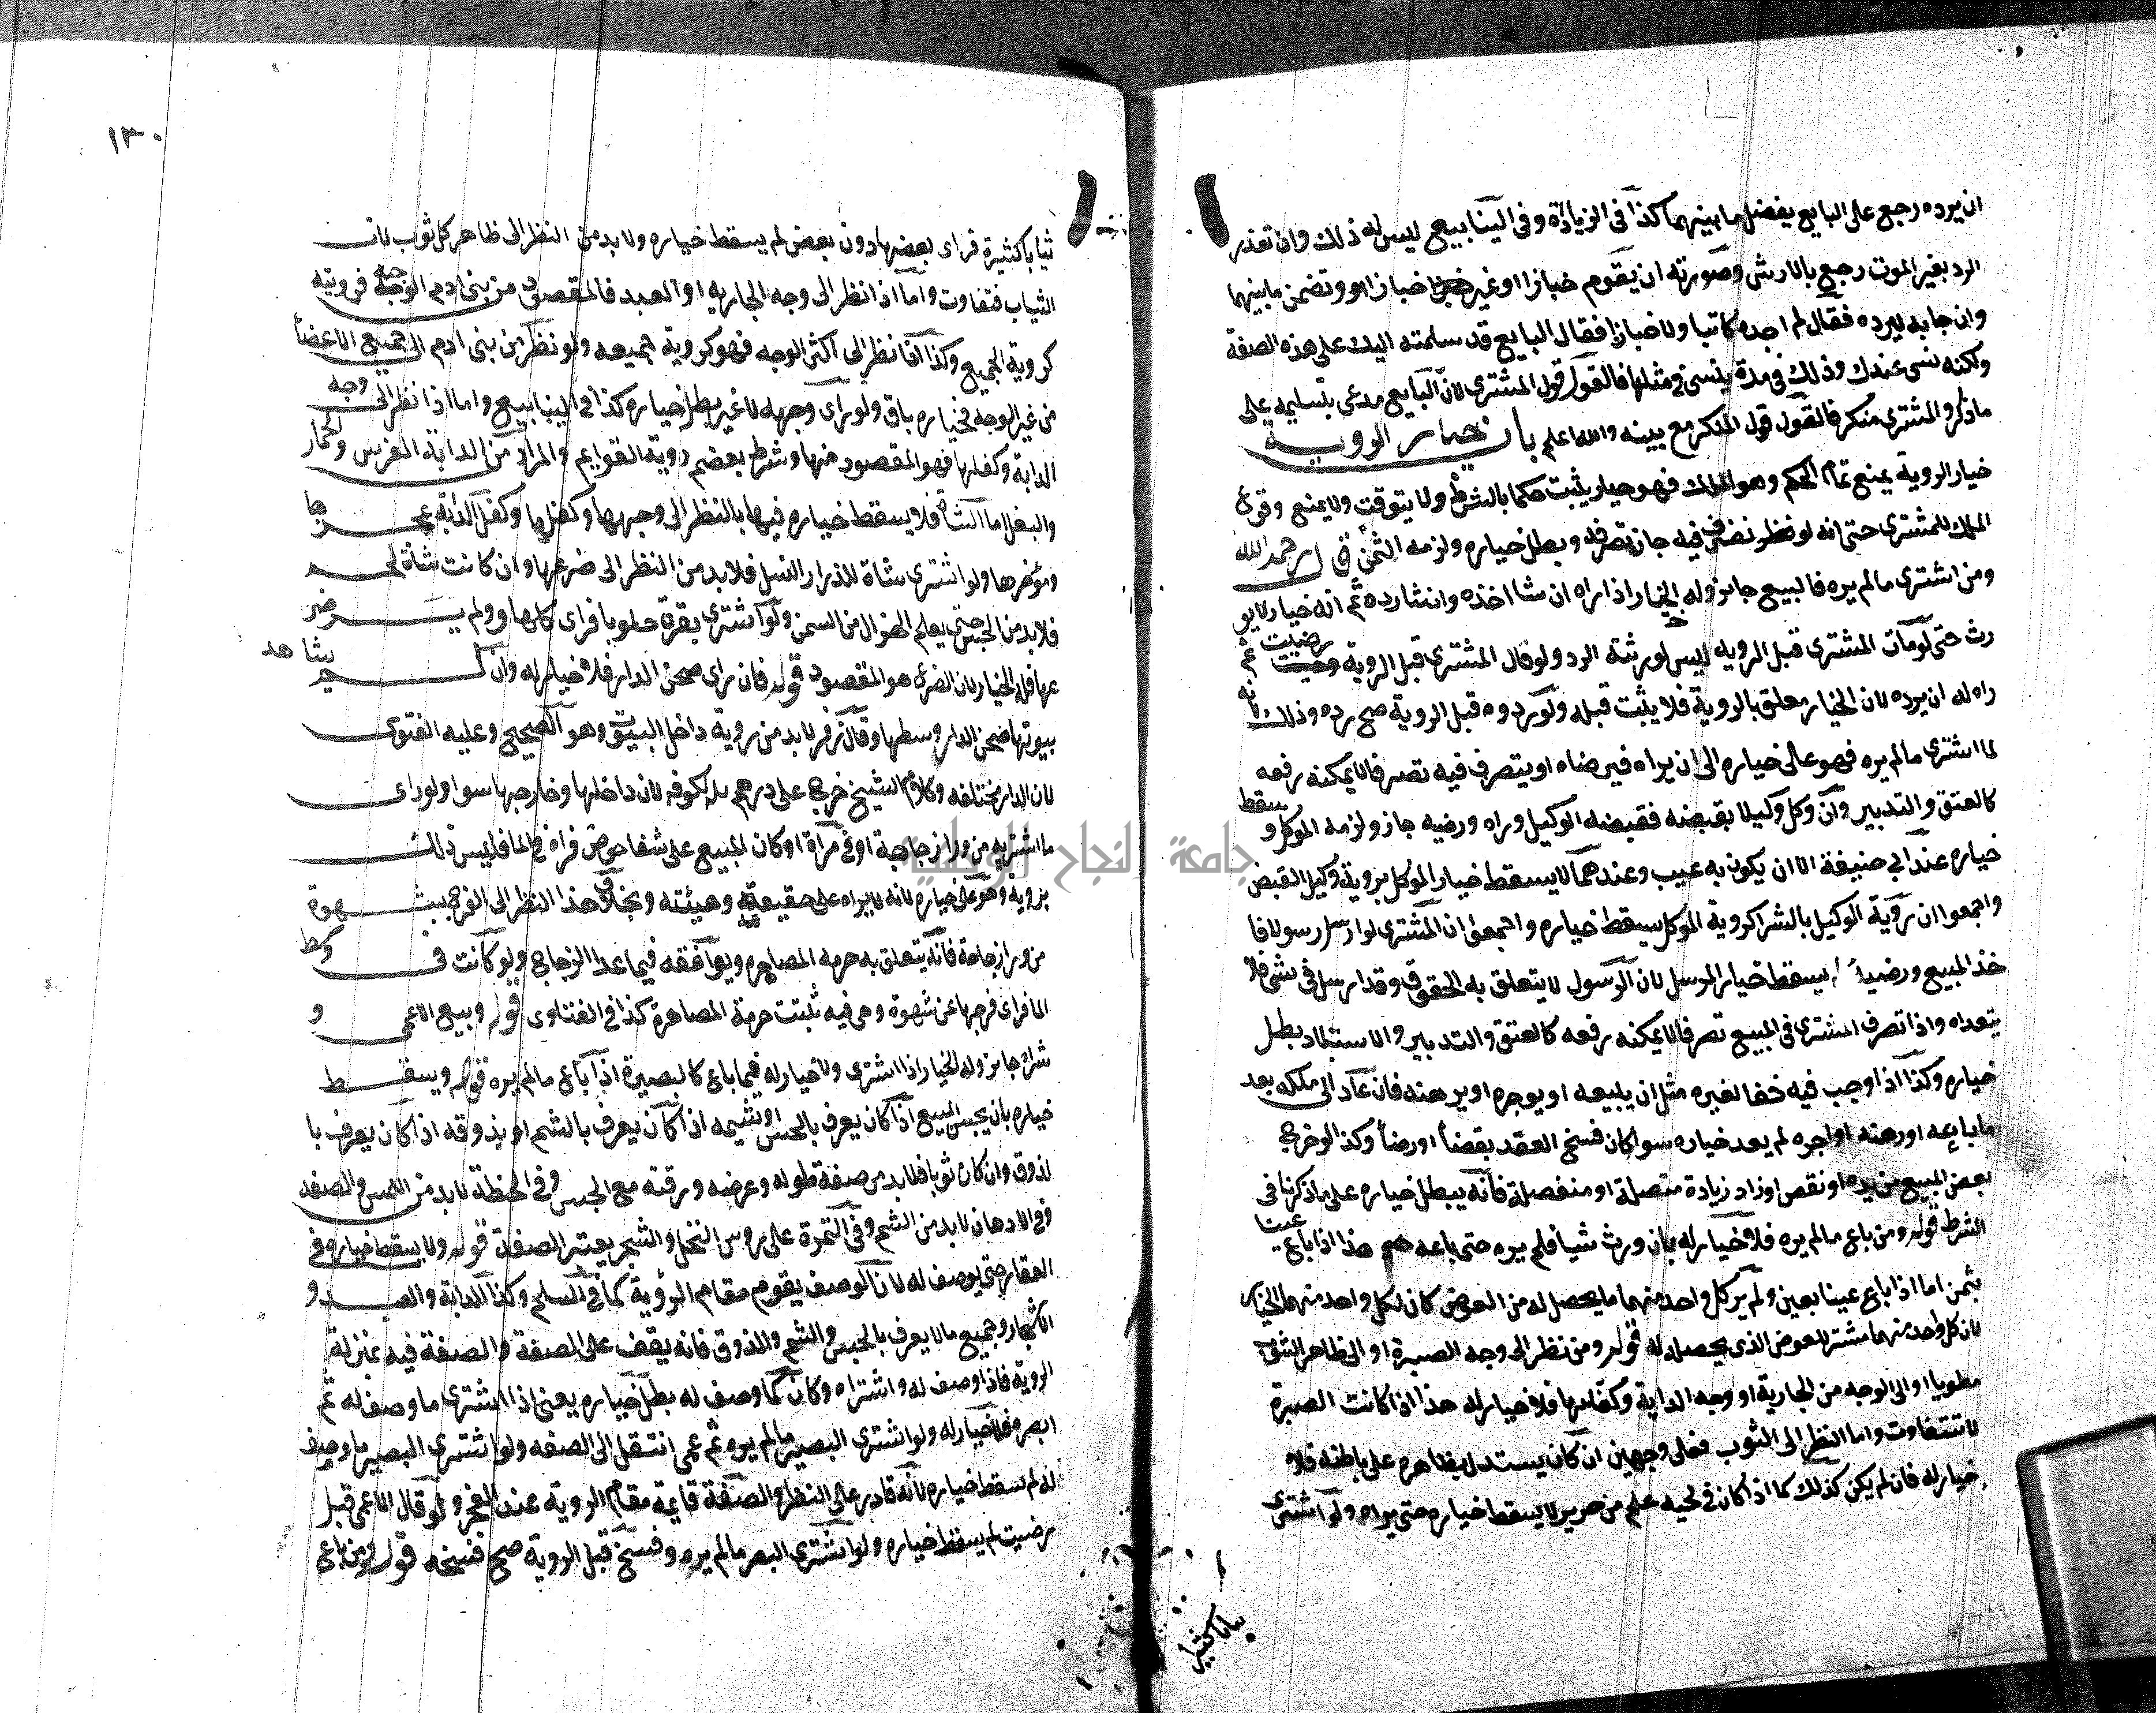 ان يرده رجع على البايع بفضل ما بينهما كذا في الزيادة وفي الينابيع ليس له ذلك وان تعذر
الرد بغير الموت رجع بالارش وصورته ان يقوم خبازا او غير خباز وتضمن ما بينهما
وان جابه ليرده فقال لم اجده كاتبا ولا خبازا فقال البايع قد سلمته اليك على هذه الصفة
ولكنه نسى عندك وذلك في مدة ينسى في مثلها فالقول قول المشتري لان البايع مدعي بتسليمه على
ماذكر والمشترى منكر فالقول قول المنكر مع يمينه والله اعلم باب خيار الروية
خيار الروية يمنع تمام الحكم وهو الملك فهو خيار يثبت حكما بالشرط ولا يتوقت ولا يمنع وقوع
الملك للمشترى حتى انه لو تصرف فيه جاز تصرفه وبطل خياره ولزمه الثمن قال رحمه الله
ومن اشترى مالم يره فالبيع جايز وله الخيار اذا راه ان شا اخذه وان شا رده ثم انه خيار لا يو
رث حتى لو مات المشترى قبل الرويه ليس لورثته الرد ولو قال المشترى قبل الروية رضيت ثم
راه له ان يرده لان الخيار معلق بالروية فلا يثبت قبله ولو رده قبل الروية صح رده وذلك لانه
لما اشترى مالم يره فهو على خياره الى ان يراه فيرضاه او يتصرف فيه تصرفا لا يمكنه رفعه
كالعتق والتدبير وان وكل وكيلا بقبضه فقبضه الوكيل وراه ورضيه جاز ولزمه الموكل وسقط
خياره عند ابي حنيفة الا ان يكون به عيب وعندهما لا يسقط خيار الموكل بروية وكيل القبض
واجمعوا ان روية الوكيل بالشرا كروية الموكل يسقط خياره واجمعوا ان المشترى لو ارسل رسولا فا
خذ المبيع ورضيه لم يسقط خيار المرسل لان الرسول لا يتعلق به الحقوق وقد ارسل في شى فلا
يتعداه واذا تصرف المشترى في المبيع تصرفا لا يمكنه رفعه كالعتق والتدبير والاستيلاد بطل
خياره وكذا اذا اوجب فيه حقا لغيره مثل ان يبيعه او يوجره او يرهنه فان عاد الى ملكه بعد
ما باعه او رهنه او اجره لم يعد خياره سوا كان فسخ العقد بقضا او رضا وكذا لو خرج
بعض المبيع من يده او نقص او زاد زيادة متصلة او منفصلة فانه يبطل خياره على ما ذكرنا في
الشرط قوله ومن باع مالم يره فلا خيار له بان ورث شيا فلم يره حتى باعه صح هذا اذا باع عينا
بثمن اما اذا باع عينا بعين ولم ير كل واحد منهما ما يحصل له من العوض كان لكل واحد منهما الخيار
لان كل واحد منهما مشتر للعوض الذي يحصل له قوله ومن نظر الى وجه الصبرة او الى ظاهر الثوب
مطويا او الى الوجه من الجارية او وجه الدابة وكفلها فلا خيار له هذا اذا كانت الصبرة
لا تتفاوت واما النظر الى الثوب فعلى وجهين ان كان يستدل بظاهره على باطنه فلا
خيار له فان لم يكن كذلك كما اذا كان في علم من حرير لا يسقط خياره حتى يراه ولو اشترى
ثيابا كثيرا
١٣٠
ثيابا كثيرة فراى بعضها دون بعض لم يسقط خياره ولا بد من النظر الى ظاهر كل ثوب لان
الثياب فتفاوت واما اذا نظر الى وجه الجاريه او العبد فالمقصود من بنى ادم الوجه فرويته
كروية الجميع وكذا اذا نظر الى اكثر الوجه فهو كروية جميعه ولو نظر من بنى ادم الى جميع الاعضا
من غير الوجه فخياره باق ولو راى وجهه لا غير بطل خياره كذا في الينابيع واما اذا نظر الى وجه
الدابة وكفلها فهو المقصود منها وشرط بعضهم روية القوايم والمراد من الدابة الفرس والحمار
والبغل اما الشاة فلا يسقط خياره فيها بالنظر الى وجهها وكفلها وكفل الدابة عجزها
وموخرها ولو اشترى شاة للدر او النسل فلا بد من النظر الى ضرعها وان كانت شاة لحم
فلا بد من الجس حتى يعلم الهزال من السمن ولو اشترى بقرة حلوبا فراى كلها ولم ير ضر
عها فله الخيار لان الضرع هو المقصود قوله فان راى صحن الدار فلا خيار له وان لم يشاهد
بيوتها صحن الدار وسطها وقال زفر لا بد من روية داخل البيوت وهو الصحيح وعليه الفتوى
لان الدار مختلفه وكلام الشيخ خرج على دورهم بالكوفه لان داخلها وخارجها سوا ولو راى
ما اشتريه من ورا زجاجة او في مرآة او كان المبيع على شفا حوض فراه في الما فليس ذلك
بروية وهو على خياره لانه لا يراه على حقيقته وهيئته وبخلاف هذا النظر الى الفرج بشهوة
من ورا زجاجة فانه يتعلق به حرمه المصاهره ويوافقه فيما عدا الزجاج ولو كانت في وسط
الما فراى فرجها عن شهوة وهى فيه ثبتت حرمة المصاهرة كذا في الفتاوى قوله وبيع الاعمى و
شراه جايز وله الخيار اذا اشترى ولا خيار له فيما باع كالبصير اذا باع مالم يره قوله ويسقط
خياره بان يجس المبيع اذا كان يعرف بالجس او يشمه اذا كان يعرف بالشم او يذوقه اذا كان يعرف با
لذوق وان كان ثوبا فلا بد من صفة طوله وعرضه ورقته مع الجس وفي الحنطة لا بد من اللمس والصفه
وفي الادهان لا بد من الشم وفي الثمرة على روس النخل والشجر يعتبر الصفة قوله ولا يسقط خياره في
العقار حتى يوصف له لان الوصف يقوم مقام الروية كما في السلم وكذا الدابة والعبد و
الاشجار وجميع ما لا يعرف بالجس والشم والذوق فانه يقف على الصفة والصفة فيه بمنزلة
الروية فاذا وصف له واشتراه وكان كما وصف له بطل خياره يعنى اذا اشترى ما وصف له ثم
ابصره فلا خيار له ولو اشترى البصير مالم يره ثم عمى انتقل الى الصفه ولو اشترى البصير ما وصف
له لم يسقط خياره لانه قادر على النظر والصفة قايمة مقام الروية عند العجز ولو قال الاعمى قبل
رضيت لم يسقط خياره ولو اشترى البصير مالم يره وفسخ قبل الروية صح فسخه قوله ومن باع
جامعة النجاح الوطنية